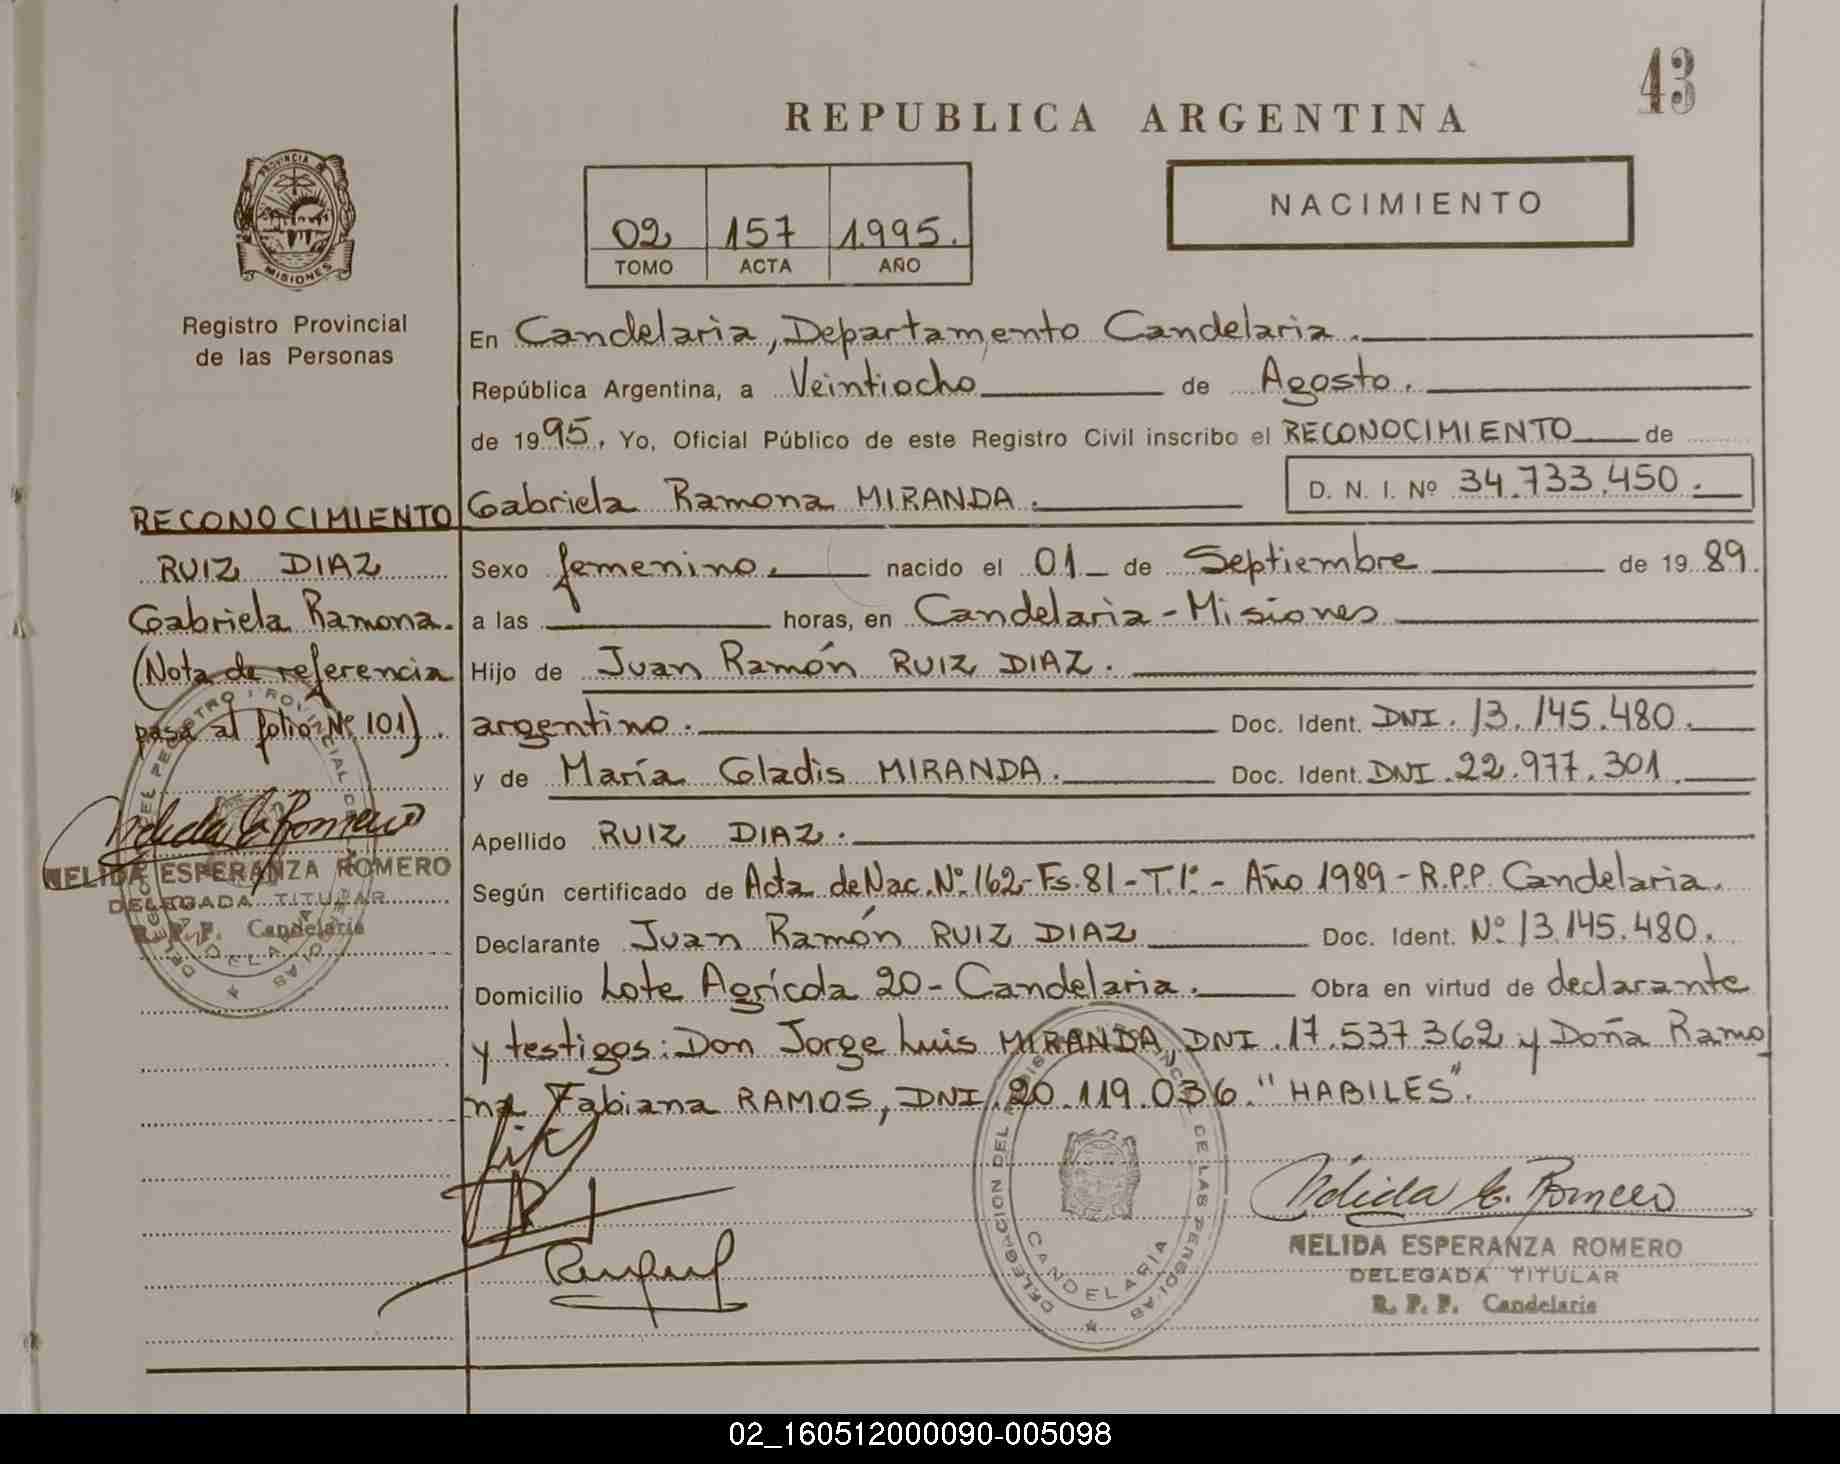 43
REPUBLICA ARGENTINA
NACIMIENTO
02 157 1.995.
TOMO ACTA AÑO
PROVINCIA DE
MISIONES
Registro Provincial
de las Personas
RECONOCIMIENTO
RUIZ DIAZ
Gabriela Ramona.
(Nota de referencia
pasa al folio Nº 101).
NELIDA ESPERANZA ROMERO
DELEGADA TITULAR
R. P. P. Candelaria
En Candelaria, Departamento Candelaria.
República Argentina, a Veintiocho de Agosto.
de 1995. Yo, Oficial Público de este Registro Civil inscribo el RECONOCIMIENTO de
Gabriela Ramona MIRANDA. D. N. I. Nº 34.733.450.
Sexo femenino. nacido el 01 de Septiembre de 1989.
a las horas, en Candelaria - Misiones
Hijo de Juan Ramón RUIZ DIAZ.
argentino. Doc. Ident. DNI. 13.145.480.
y de María Gladis MIRANDA. Doc. Ident. DNI. 22.977.301.
Apellido RUIZ DIAZ.
Según certificado de Acta de Nac. Nº 162-Fs.81-T.1º- Año 1989-R.P.P. Candelaria.
Declarante Juan Ramón RUIZ DIAZ Doc. Ident. Nº 13.145.480.
Domicilio Lote Agrícola 20- Candelaria. Obra en virtud de declarante
y testigos: Don Jorge Luis MIRANDA, DNI. 17.537.362 y Doña Ramo
na Fabiana RAMOS, DNI. 20.119.036. "HABILES".
DELEGACION DEL REGISTRO PROVINCIAL DE LAS PERSONAS
CANDELARIA
Nélida E. Romero
NELIDA ESPERANZA ROMERO
DELEGADA TITULAR
R. P. P. Candelaria
02_160512000090-005098